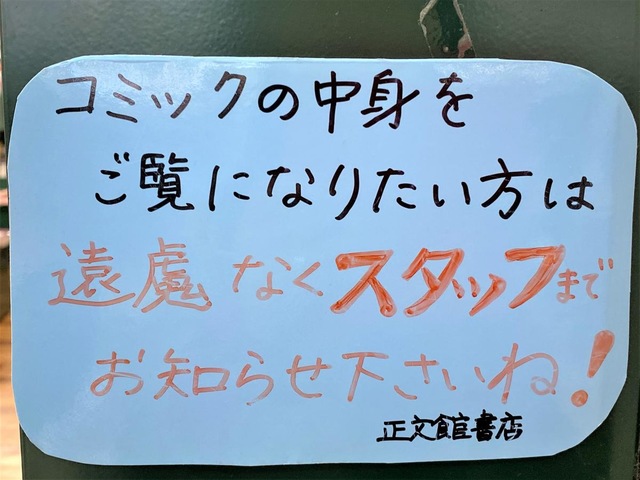 コミックの中身を
ご覧になりたい方は
遠慮なくスタッフまで
お知らせ下さいね！
正文館書店